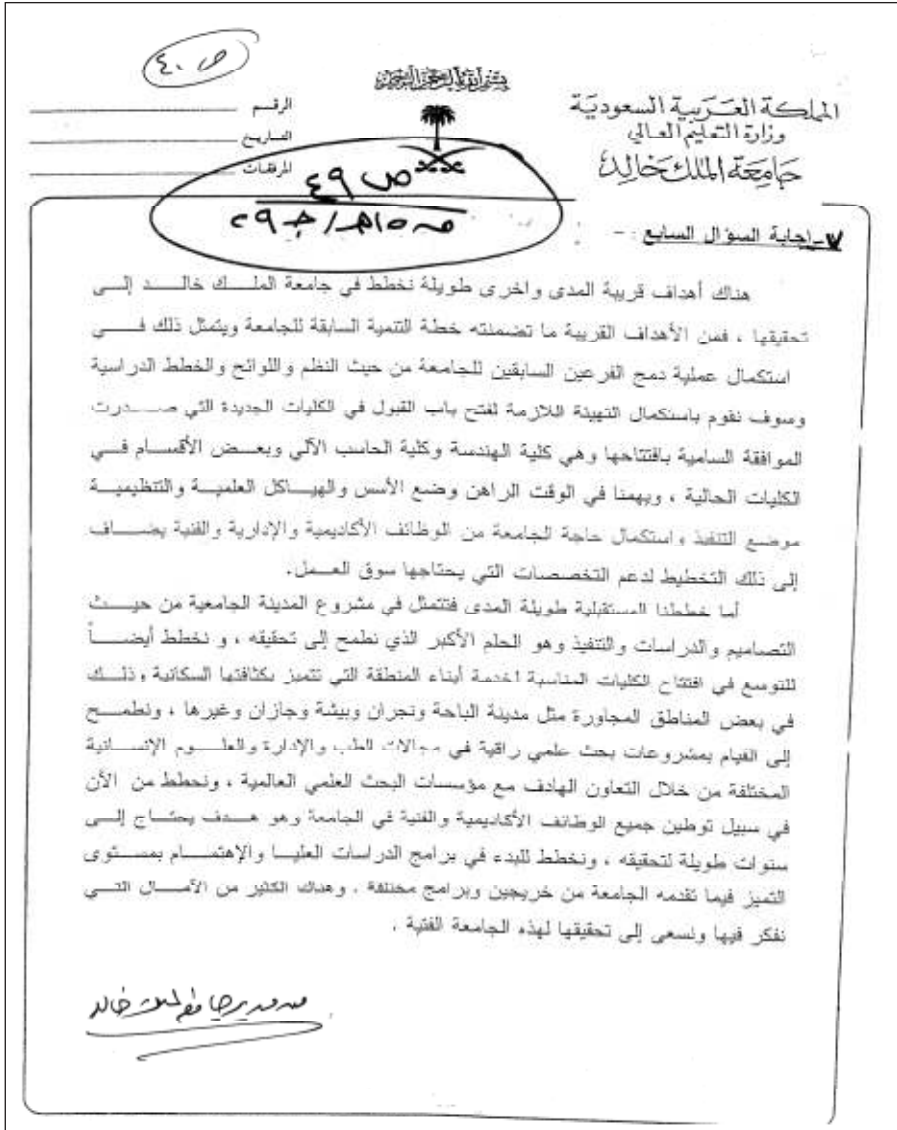 ص ٤٠
بسم الله الرحمن الرحيم
المملكة العربية السعودية
وزارة التعليم العالي
جامعة الملك خالد
الرقم
التاريخ
المرفقات
ص ٤٩
٧- إجابة السؤال السابع :-
هناك أهداف قريبة المدى واخرى طويلة نخطط في جامعة الملك خالد إلى
تحقيقها ، فمن الأهداف القريبة ما تضمنته خطة التنمية السابقة للجامعة ويتمثل ذلك في
استكمال عملية دمج الفرعين السابقين للجامعة من حيث النظم واللوائح والخطط الدراسية
وسوف نقوم باستكمال التهيئة اللازمة لفتح باب القبول في الكليات الجديدة التي صدرت
الموافقة السامية بافتتاحها وهي كلية الهندسة وكلية الحاسب الآلي وبعض الأقسام في
الكليات الحالية ، ويهمنا في الوقت الراهن وضع الأسس والهياكل العلمية والتنظيمية
موضع التنفيذ واستكمال حاجة الجامعة من الوظائف الأكاديمية والإدارية والفنية يضاف
إلى ذلك التخطيط لدعم التخصصات التي يحتاجها سوق العمل .
أما خططنا المستقبلية طويلة المدى فتتمثل في مشروع المدينة الجامعية من حيث
التصاميم والدراسات والتنفيذ وهو الحلم الأكبر الذي نطمح إلى تحقيقه ، و نخطط أيضاً
للتوسع في افتتاح الكليات المناسبة لخدمة أبناء المنطقة التي تتميز بكثافتها السكانية وذلك
في بعض المناطق المجاورة مثل مدينة الباحة ونجران وبيشة وجازان وغيرها ، ونطمح
إلى القيام بمشروعات بحث علمي راقية في مجالات الطب والإدارة والعلوم الإنسانية
المختلفة من خلال التعاون الهادف مع مؤسسات البحث العلمي العالمية ، ونخطط من الآن
في سبيل توطين جميع الوظائف الأكاديمية والفنية في الجامعة وهو هدف يحتاج إلى
سنوات طويلة لتحقيقه ، ونخطط للبدء في برامج الدراسات العليا والإهتمام بمستوى
التميز فيما تقدمه الجامعة من خريجين وبرامج مختلفة . وهناك الكثير من الآمال التي
نفكر فيها ونسعى إلى تحقيقها لهذه الجامعة الفتية .
مدير جامعة الملك خالد